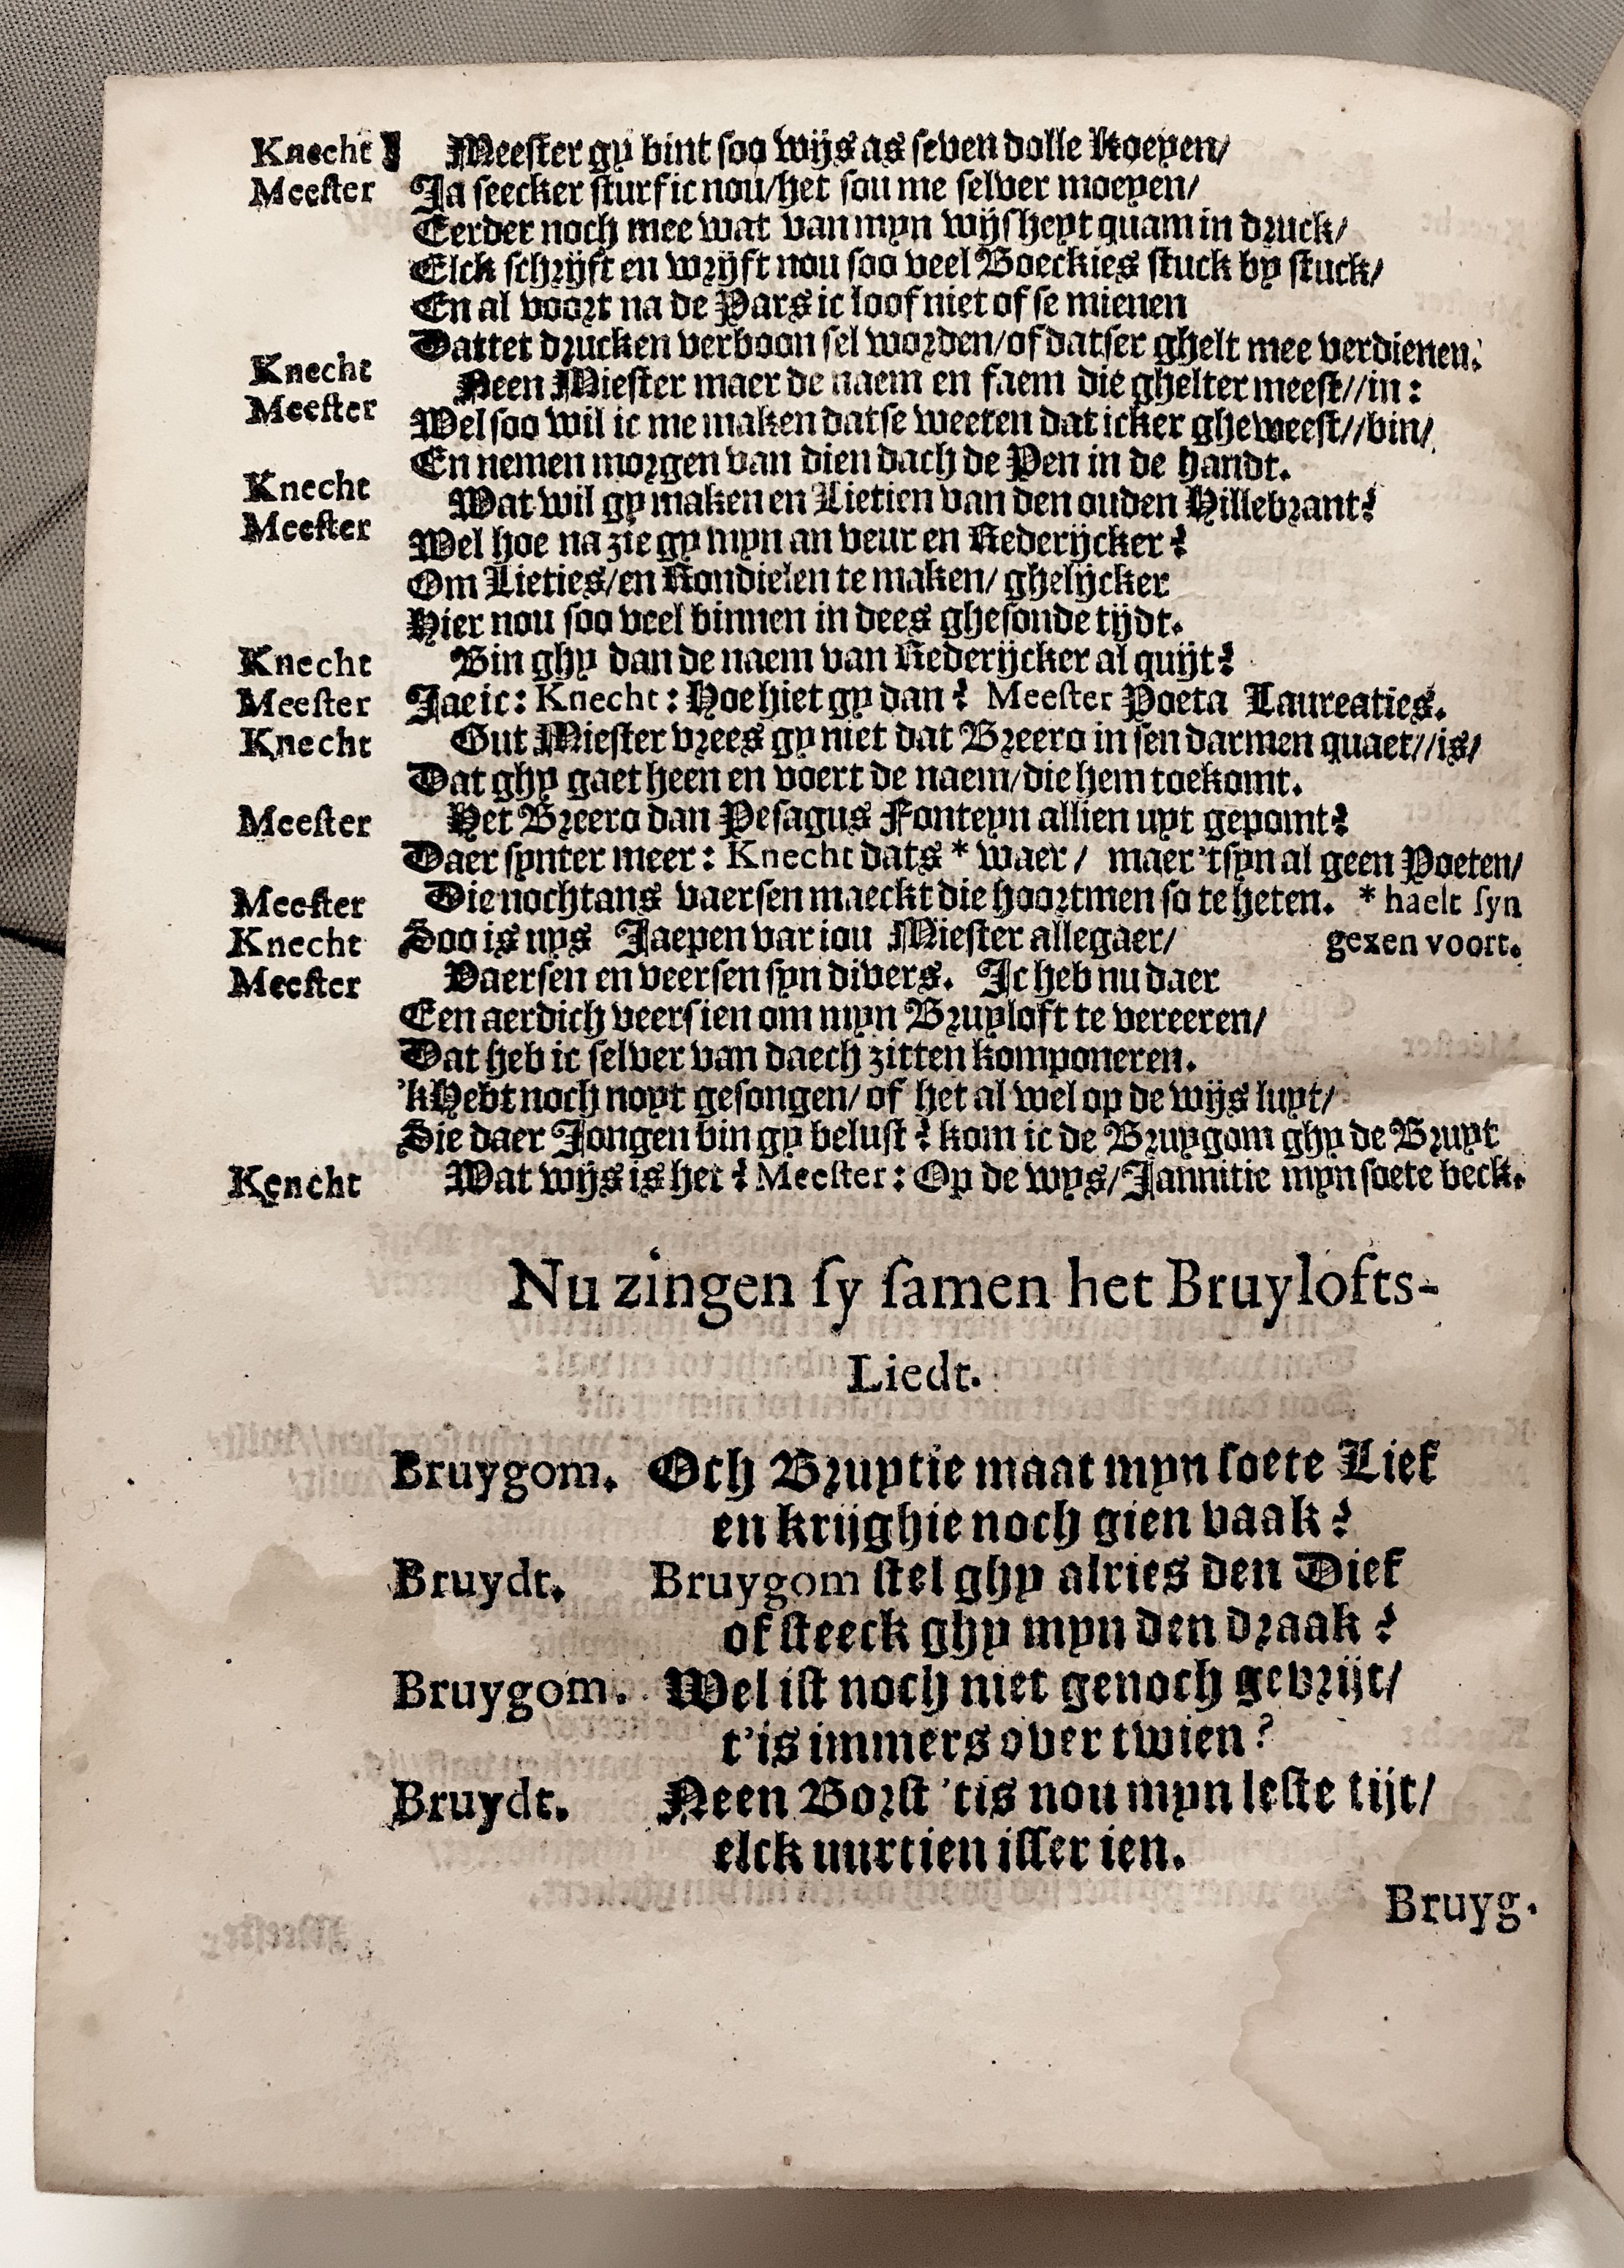 Knecht Meester gy bint soo wijs as seven dolle Koeyen/
Meester Ja seecker sturf ic nou/het sou me selver moeyen/
Eerder noch mee wat van myn wijsheyt quam in druck/
Elck schrijft en wrijft nou soo veel Boeckies stuck by stuck/
En al voort na de Pars ic loof niet of se mienen
Dattet drucken verboon sel worden/of datser ghelt mee verdienen.
Knecht Neen Miester maer de naem en faem die ghelter meest//in:
Meester Wel soo wil ic me maken datse weeten dat icker gheweest//bin/
En nemen morgen van dien dach de Pen in de handt.
Knecht Wat wil gy maken en Lietien van den ouden Hillebrant?
Meester Wel hoe na zie gy myn an veur en Rederijcker?
Om Lieties/en Rondielen te maken/ ghelijcker
Hier nou soo veel binnen in dees ghesonde tijdt.
Knecht Bin ghy dan de naem van Rederijcker al quijt?
Meester Jae ic: Knecht: Hoe hiet gy dan? Meester Poeta Laureaties.
Knecht Gut Miester vrees gy niet dat Breero in sen darmen quaet//is/
Dat ghy gaet heen en voert de naem/die hem toekomt.
Meester Het Breero dan Pesagus Fonteyn allien uyt gepomt?
Daer synter meer: Knecht dats * waer/ maer 'tsyn al geen Poeten/
Meester Die nochtans vaersen maeckt die hoortmen so te heten. * haelt syn
Knecht Soo is uys Jaepen var iou Miester allegaer/ gexen voort.
Meester Vaersen en veersen syn divers. Ic heb nu daer
Een aerdich veersien om myn Bruyloft te vereeren/
Dat heb ic selver van daech zitten komponeren.
'kHebt noch noyt gesongen/ of het al wel op de wijs luyt/
Sie daer Jongen bin gy belust? kom ic de Bruygom ghy de Bruyt
Kencht Wat wijs is het? Meester: Op de wys/Jannitie myn soete beck.
Nu zingen sy samen het Bruylofts-
Liedt.
Bruygom. Och Bruytie maat myn soete Lief
en krijghie noch gien vaak?
Bruydt. Bruygom stel ghy alries den Dief
of steeck ghy myn den draak?
Bruygom. Wel ist noch niet genoch gevrijt/
t'is immers over twien?
Bruydt. Neen Borst 'tis nou myn leste tijt/
elck uurtien isser ien.
Bruyg.